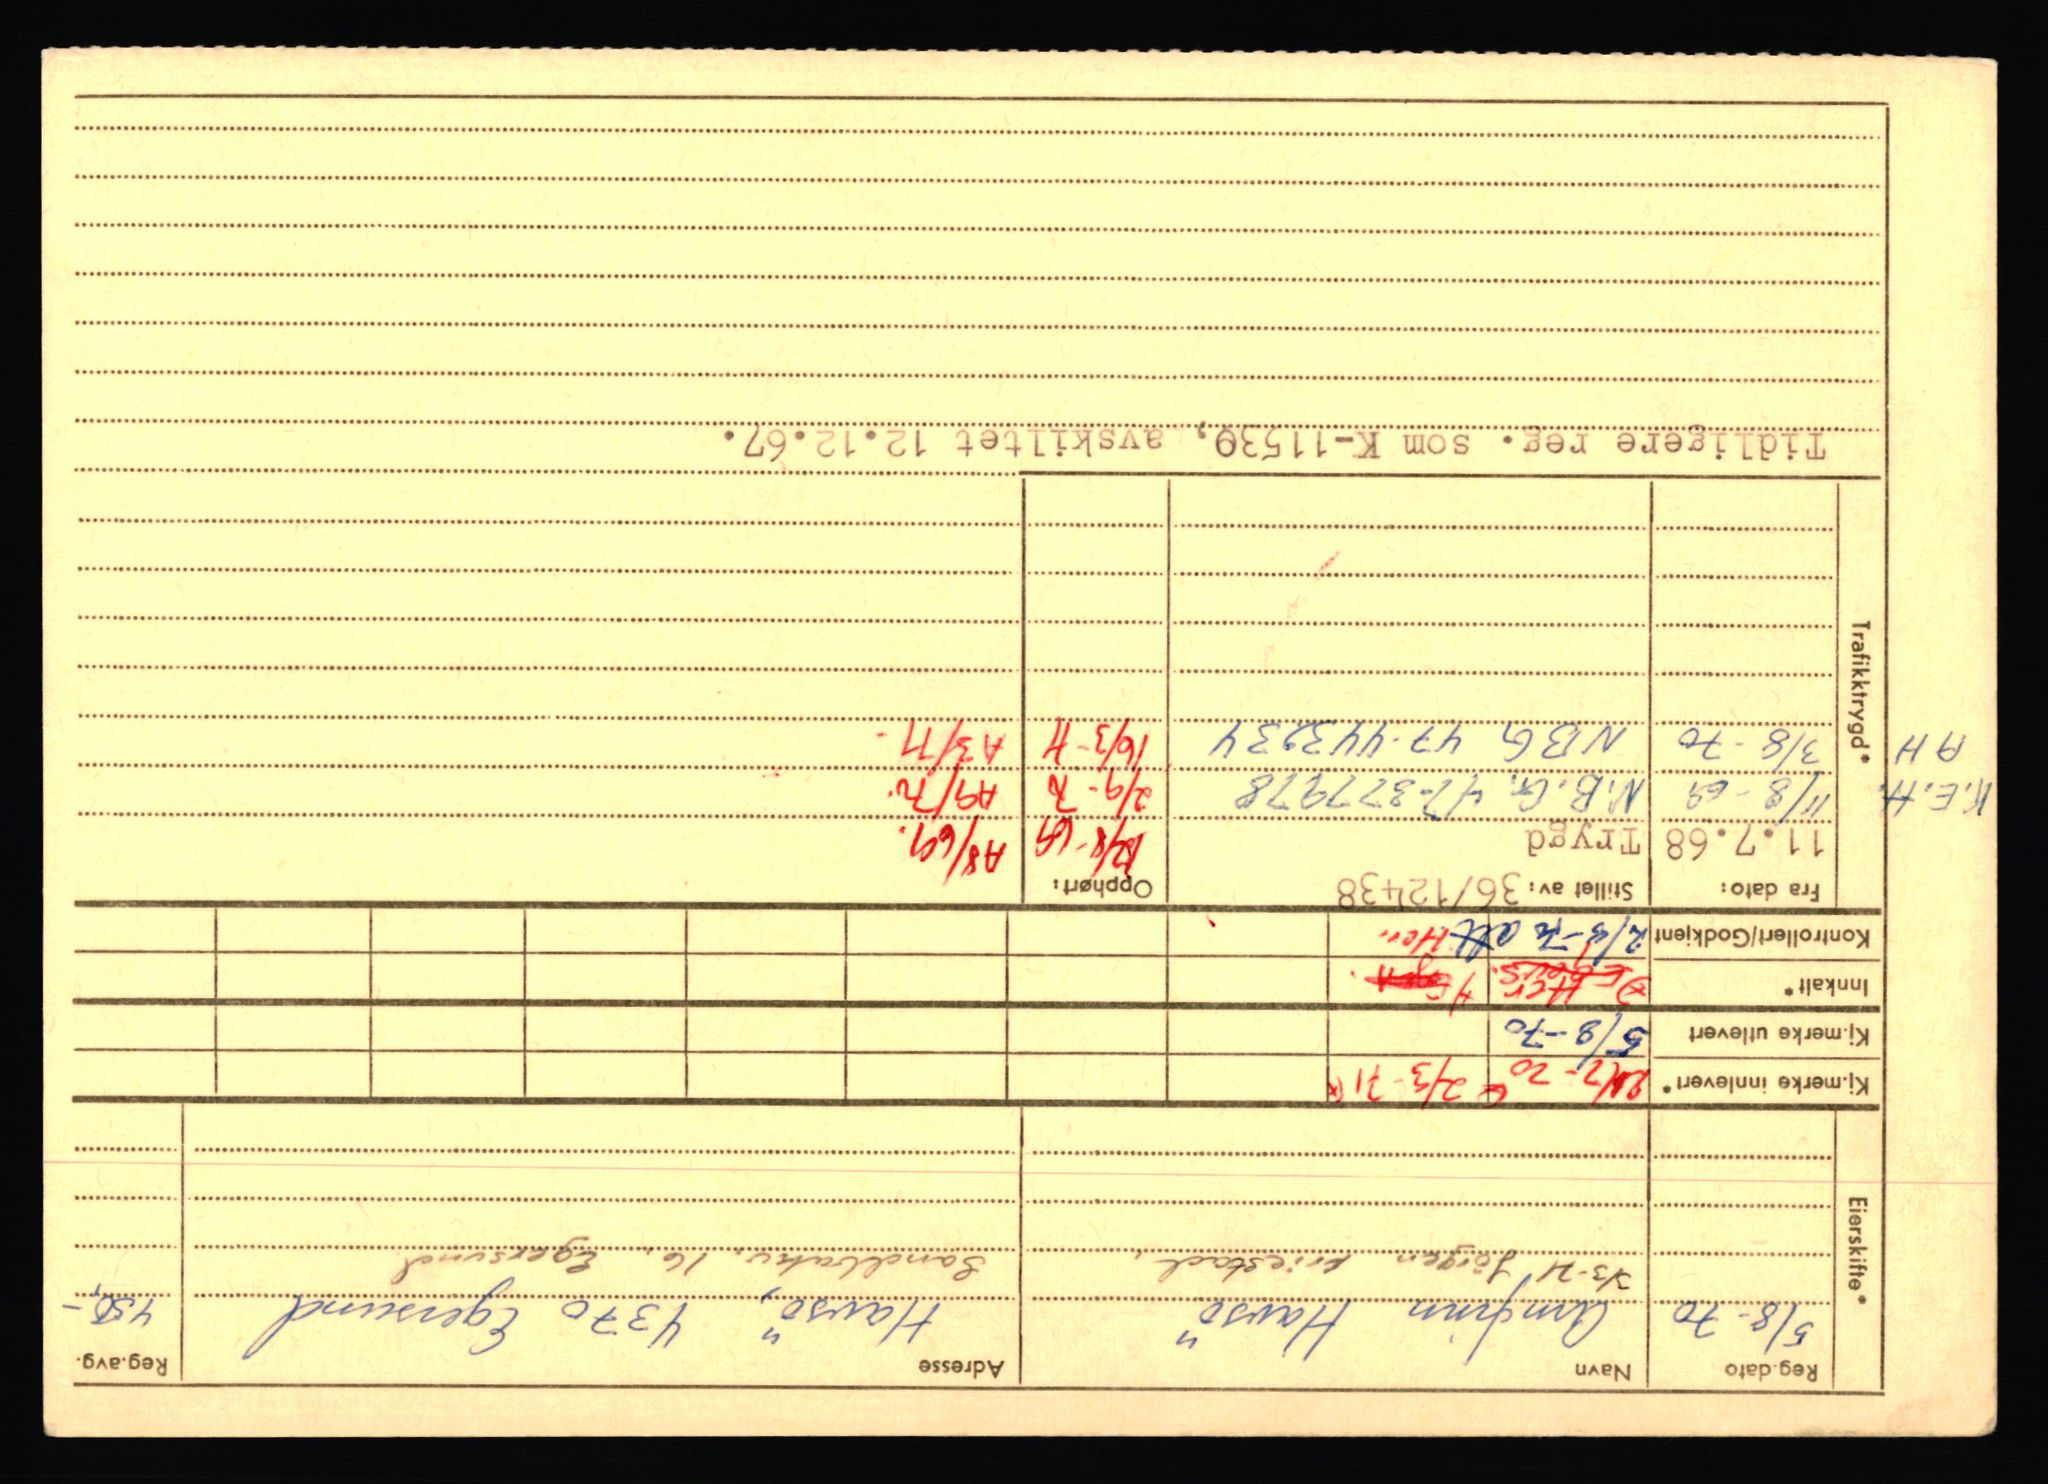 Eierskifte*
Reg.dato Navn Adresse Reg.avg.
5/8-70 Arnfinn Havsö Havsö, 4370 Egersund 450,-
2/3-71 Jörgen Friestad, Sandbakv. 16. Egersund
Kj.merke innlevert* 21/7-70 2/3-71
Kj.merke utlevert 5/8-70
Innkalt* Her
Kontrollert/Godkjent alt Her.
Trafikktrygd*
Fra dato: Stillet av: 36/12438 Opphørt:
11.7.68 Trygd 12/8-69 A8/69.
K.E.H. 11/8-69 N.B.G. 47-377978 2/9-70 A9/70.
AH 3/8-70 NBG 47-443234 16/3-71 A3/71-
Tidligere reg. som K-11530, avskiltet 12.12.67.